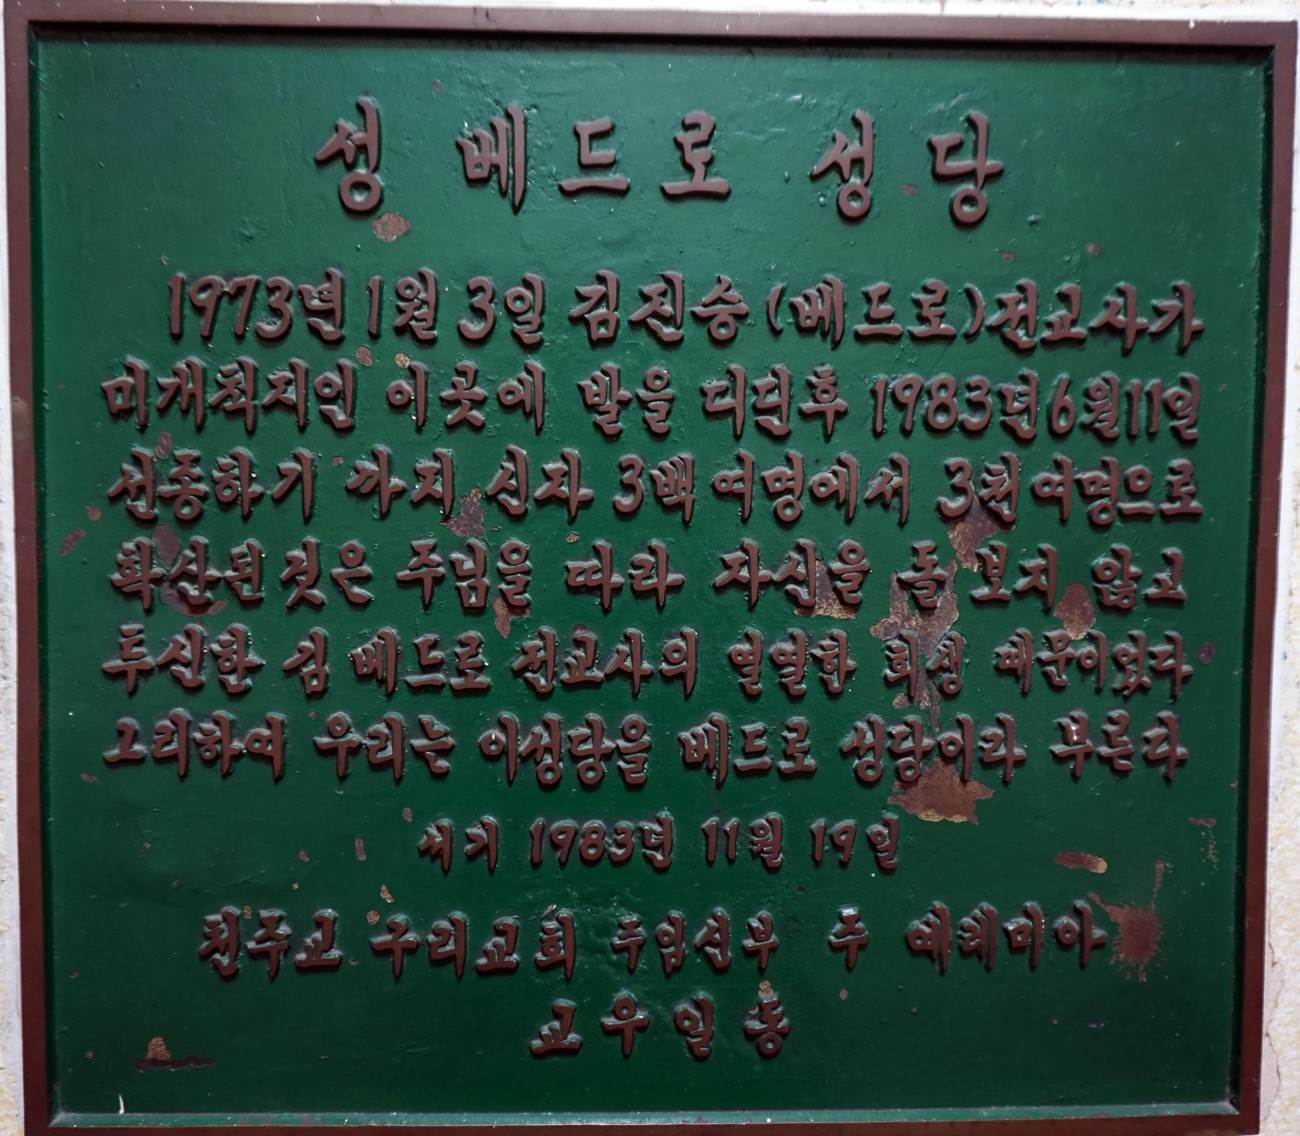 성 베드로 성당
1973년 1월 3일 김진승(베드로)전교사가
미개척지인 이곳에 발을 디딘후 1983년6월11일
선종하기 까지 신자 3백 여명에서 3천 여명으로
확산된 것은 주님을 따라 자신을 돌 보지 않고
투신한 김 베드로 전교사의 열열한 희생 때문이었다
그리하여 우리는 이성당을 베드로 성당이라 부른다
서기 1983년 11월 19일
천주교 구리교회 주임신부 주 예레미아
교우일동